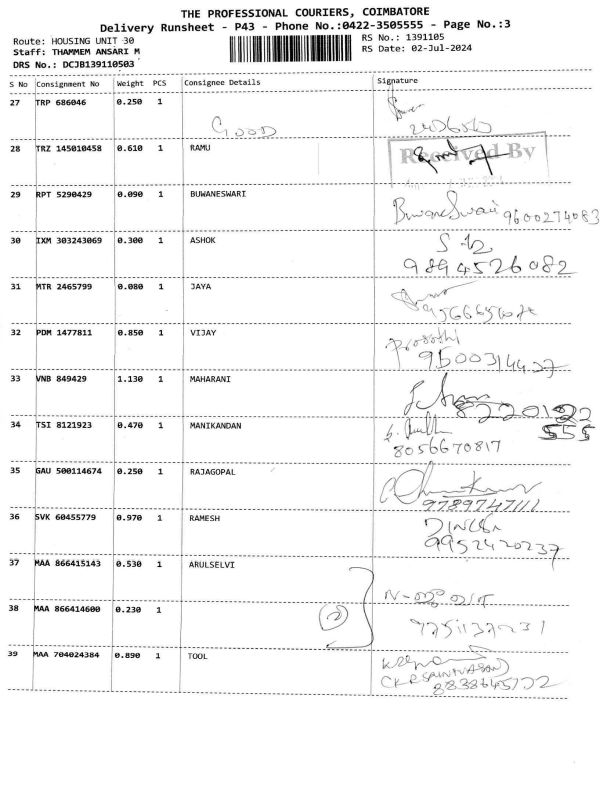 THE PROFESSIONAL COURIERS, COIMBATORE
Delivery Runsheet - P43 - Phone No.:0422-3505555 - Page No.:3
Route: HOUSING UNIT 30
RS No.: 1391105
Staff: THAMMEM ANSARI M
RS Date: 02-Jul-2024
DRS No.: DCJB139110503
S No Consignment No Weight PCS Consignee Details Signature
27 TRP 686046 0.250 1
GOOD
28 TRZ 145010458 0.610 1 RAMU
Received By
29 RPT 5290429 0.090 1 BUWANESWARI
BuwaneSwari 9600274083
30 IXM 303243069 0.300 1 ASHOK
9894526082
31 MTR 2465799 0.080 1 JAYA
32 PDM 1477811 0.850 1 VIJAY
9500314427
33 VNB 849429 1.130 1 MAHARANI
8220122
555
34 TSI 8121923 0.470 1 MANIKANDAN
8056670817
35 GAU 500114674 0.250 1 RAJAGOPAL
9789747111
36 SVK 60455779 0.970 1 RAMESH
9952420237
37 MAA 866415143 0.530 1 ARULSELVI
38 MAA 866414600 0.230 1
2
39 MAA 704024384 0.890 1 TOOL